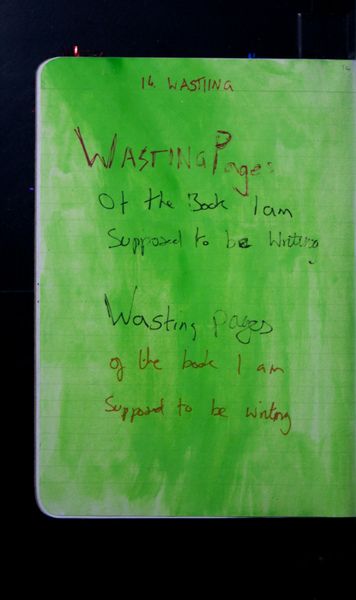 14. WASTING
WASTING Pages
Of the Book I am
Supposed to be Writing
Wasting pages
of the book I am
Supposed to be writing